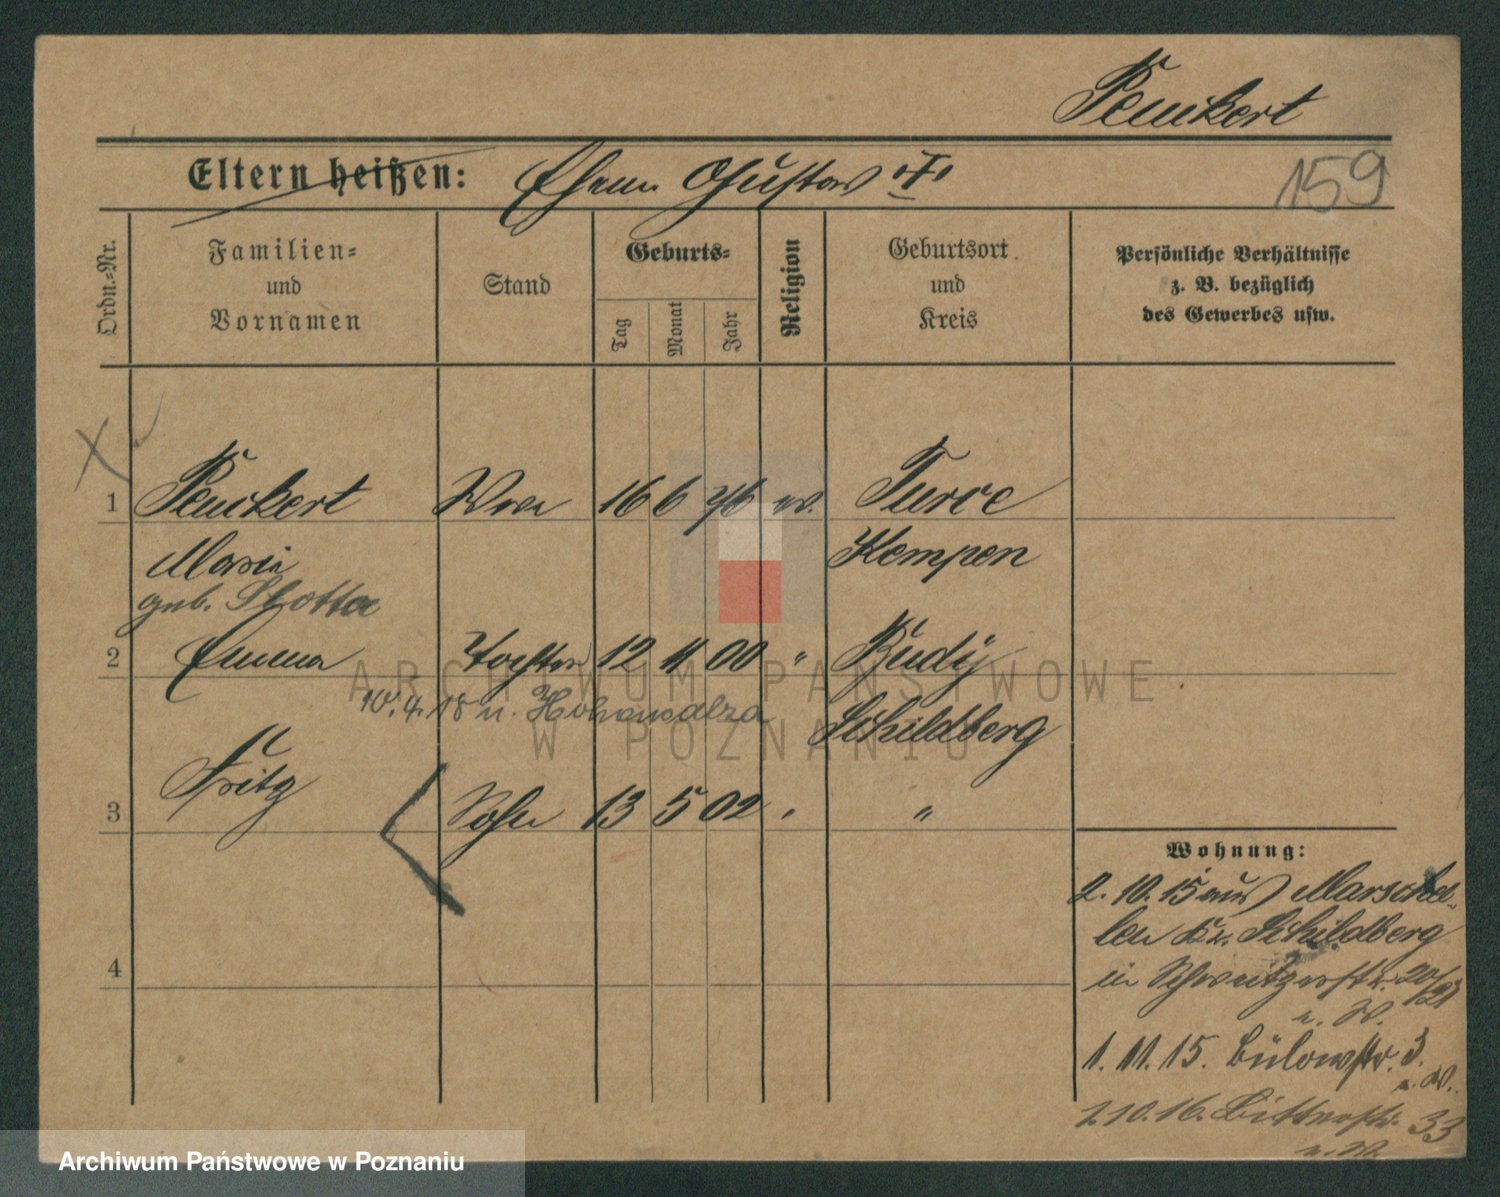 Peuckert
Eltern heißen: Ehem. Gustav
159
Ordn.-Nr.
Familien-
und
Vornamen
Stand
Geburts-
Tag
Monat
Jahr
Religion
Geburtsort
und
Kreis
Persönliche Verhältnisse
z. B. bezüglich
des Gewerbes usw.
1 Peuckert Wwe 16 6 76 Turce
Maria Kempen
geb. Slotta
2 Emma Tochter 12 11 00 " Rudy
10.4.18 n. Hohensalza
Schildberg
Fritz
3 Sohn 13 5 02 " "
Wohnung:
2.10.15 aus Marschel-
len Kr. Schildberg
in 20/21
1.11.15. Bülowstr. 3.
1.10.16. 33
4
ARCHIWUM PAŃSTWOWE
W POZNANIU
Archiwum Państwowe w Poznaniu